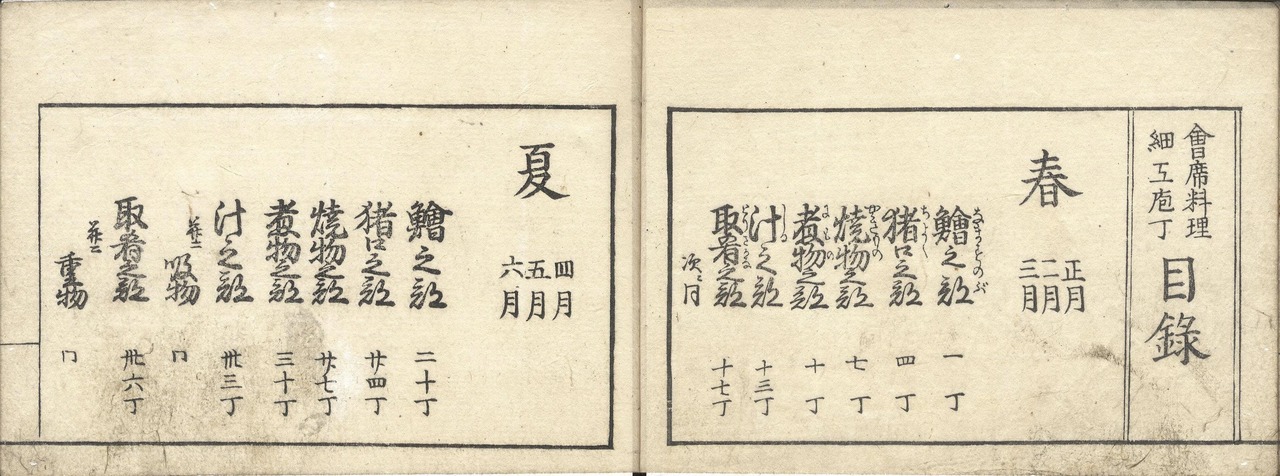 會席料理
細工庖丁
目錄
春
正月
二月
三月
鱠之部 一丁
猪口之部 四丁
燒物之部 七丁
煮物之部 十丁
汁之部 十三丁
取肴之部 十七丁
夏
四月
五月
六月
鱠之部 二十丁
猪口之部 廿四丁
燒物之部 廿七丁
煮物之部 三十丁
汁之部 卅三丁
吸物
取肴之部 卅六丁
重物